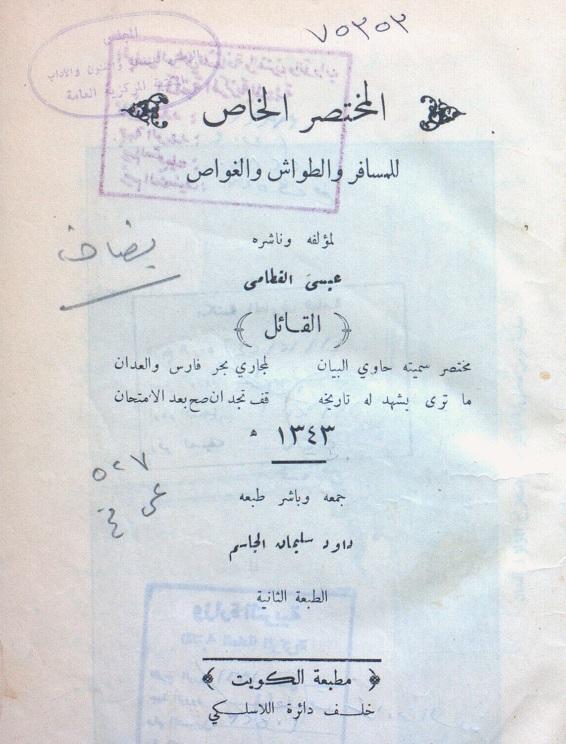 ٧٥٣٥٣
المختصر الخاص
للمسافر والطواش والغواص
يضاف
لمؤلفه وناشره
عيسى القطامى
( القائل )
مختصر سميته حاوي البيان لمجاري بحر فارس والعدان
ما ترى يشهد له تاريخه قف تجد ان صح بعد الامتحان
١٣٤٣ ه
٥٢٧
جمعه وباشر طبعه
داود سليمان الجاسم
الطبعة الثانية
مطبعة الكويت
خلف دائرة اللاسلكي